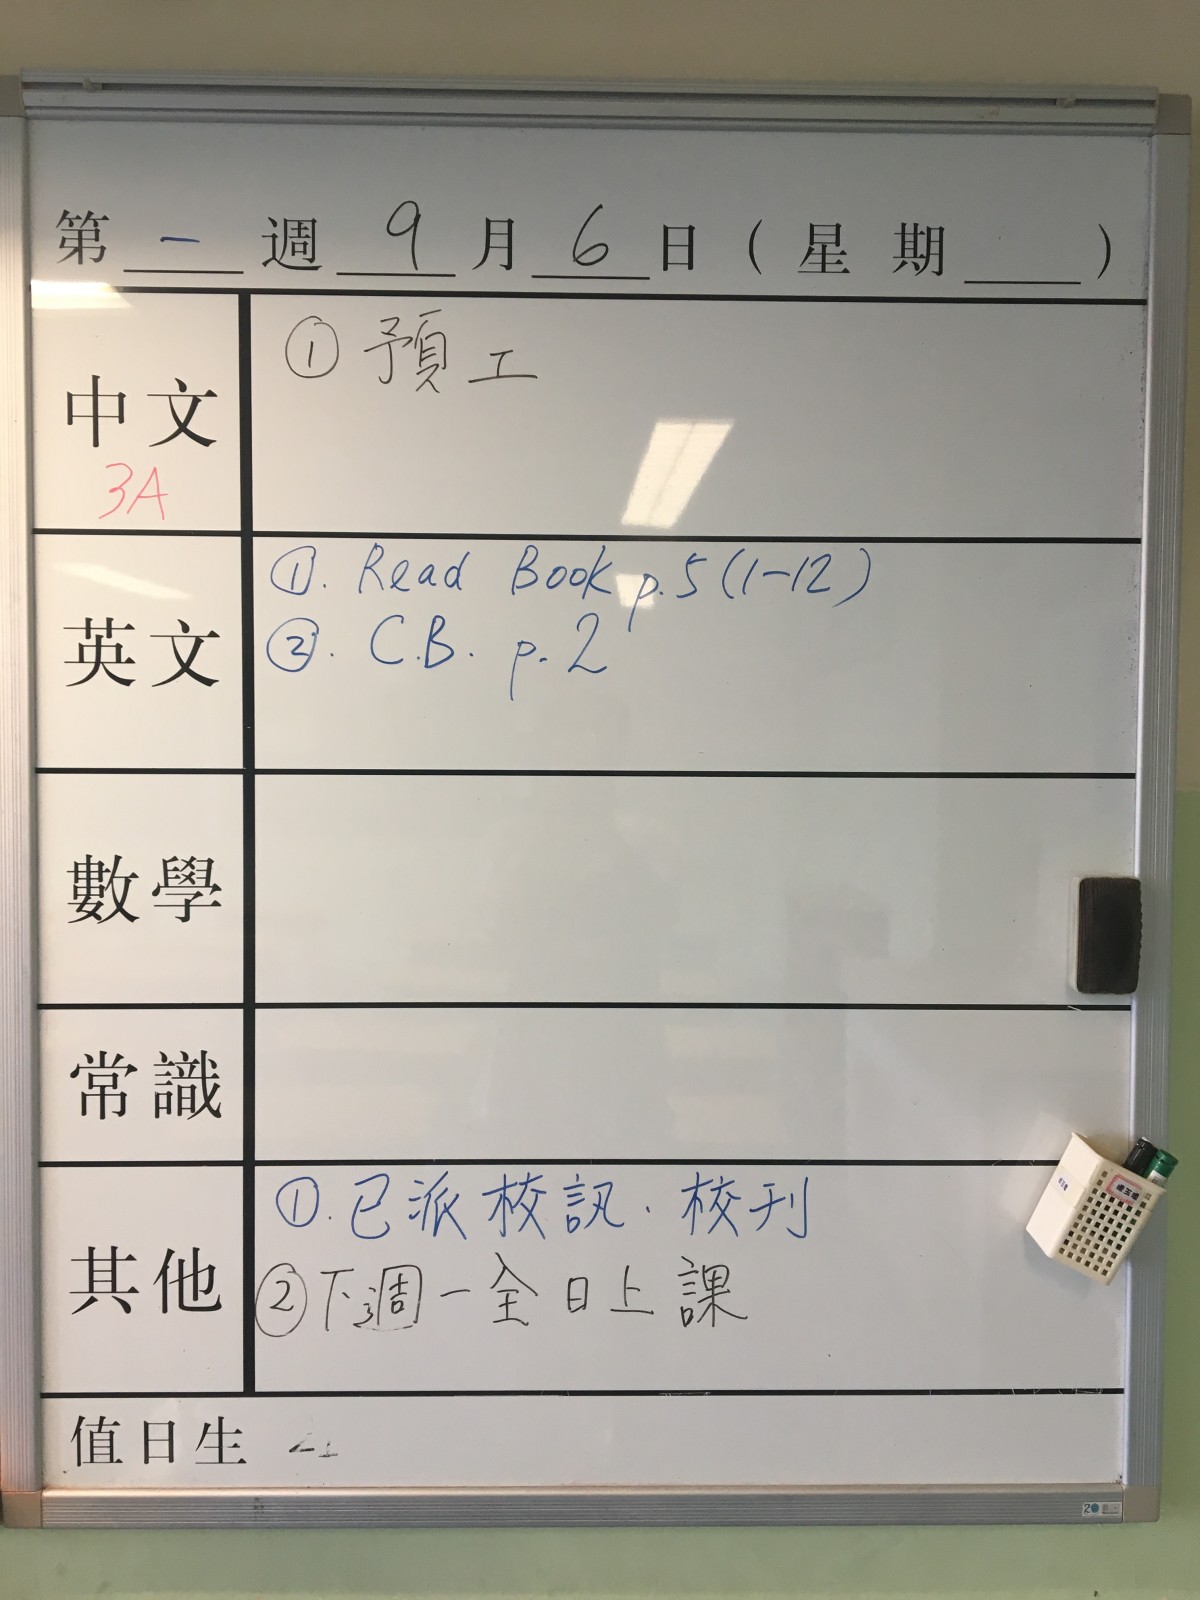 第 一 週 9 月 6 日 ( 星 期 )
中文
3A
① 預工
英文
①. Read Book p.5 (1-12)
②. C.B. p.2
數學
常識
其他
①. 已派校訊.校刊
② 下週一全日上課
值日生